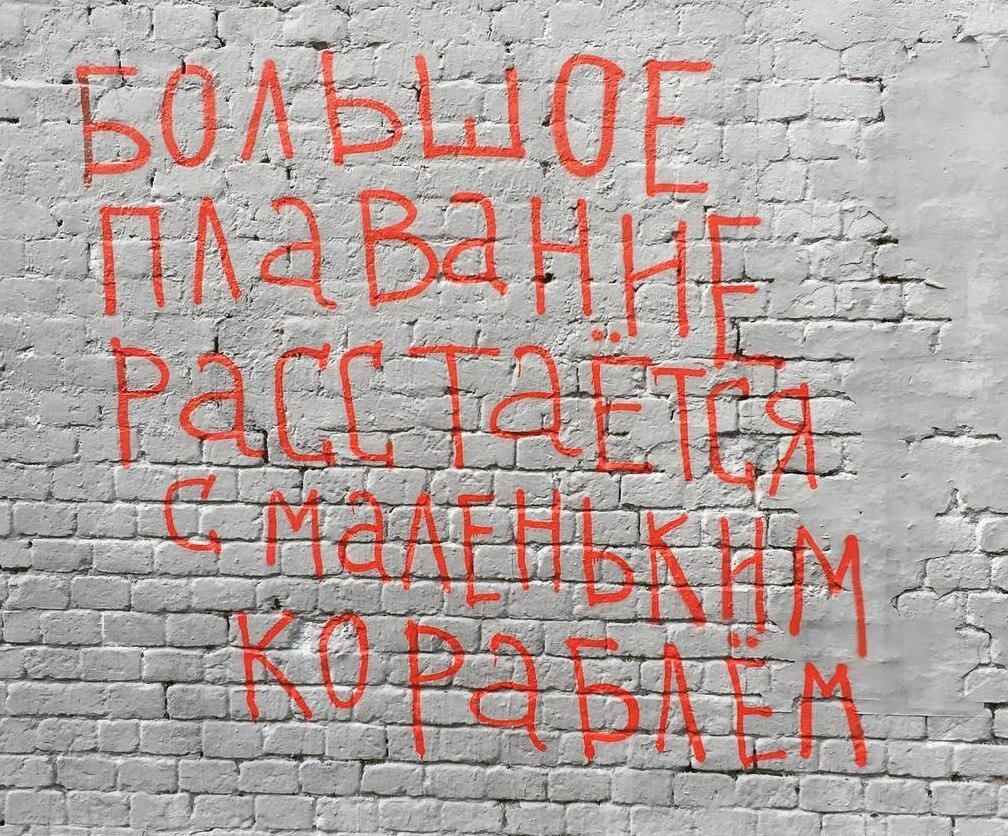 БОЛЬШОЕ
ПЛаВаНИЕ
РаССТаЁТСЯ
С МаЛЕНЬКИМ
КОРаБЛЁМ